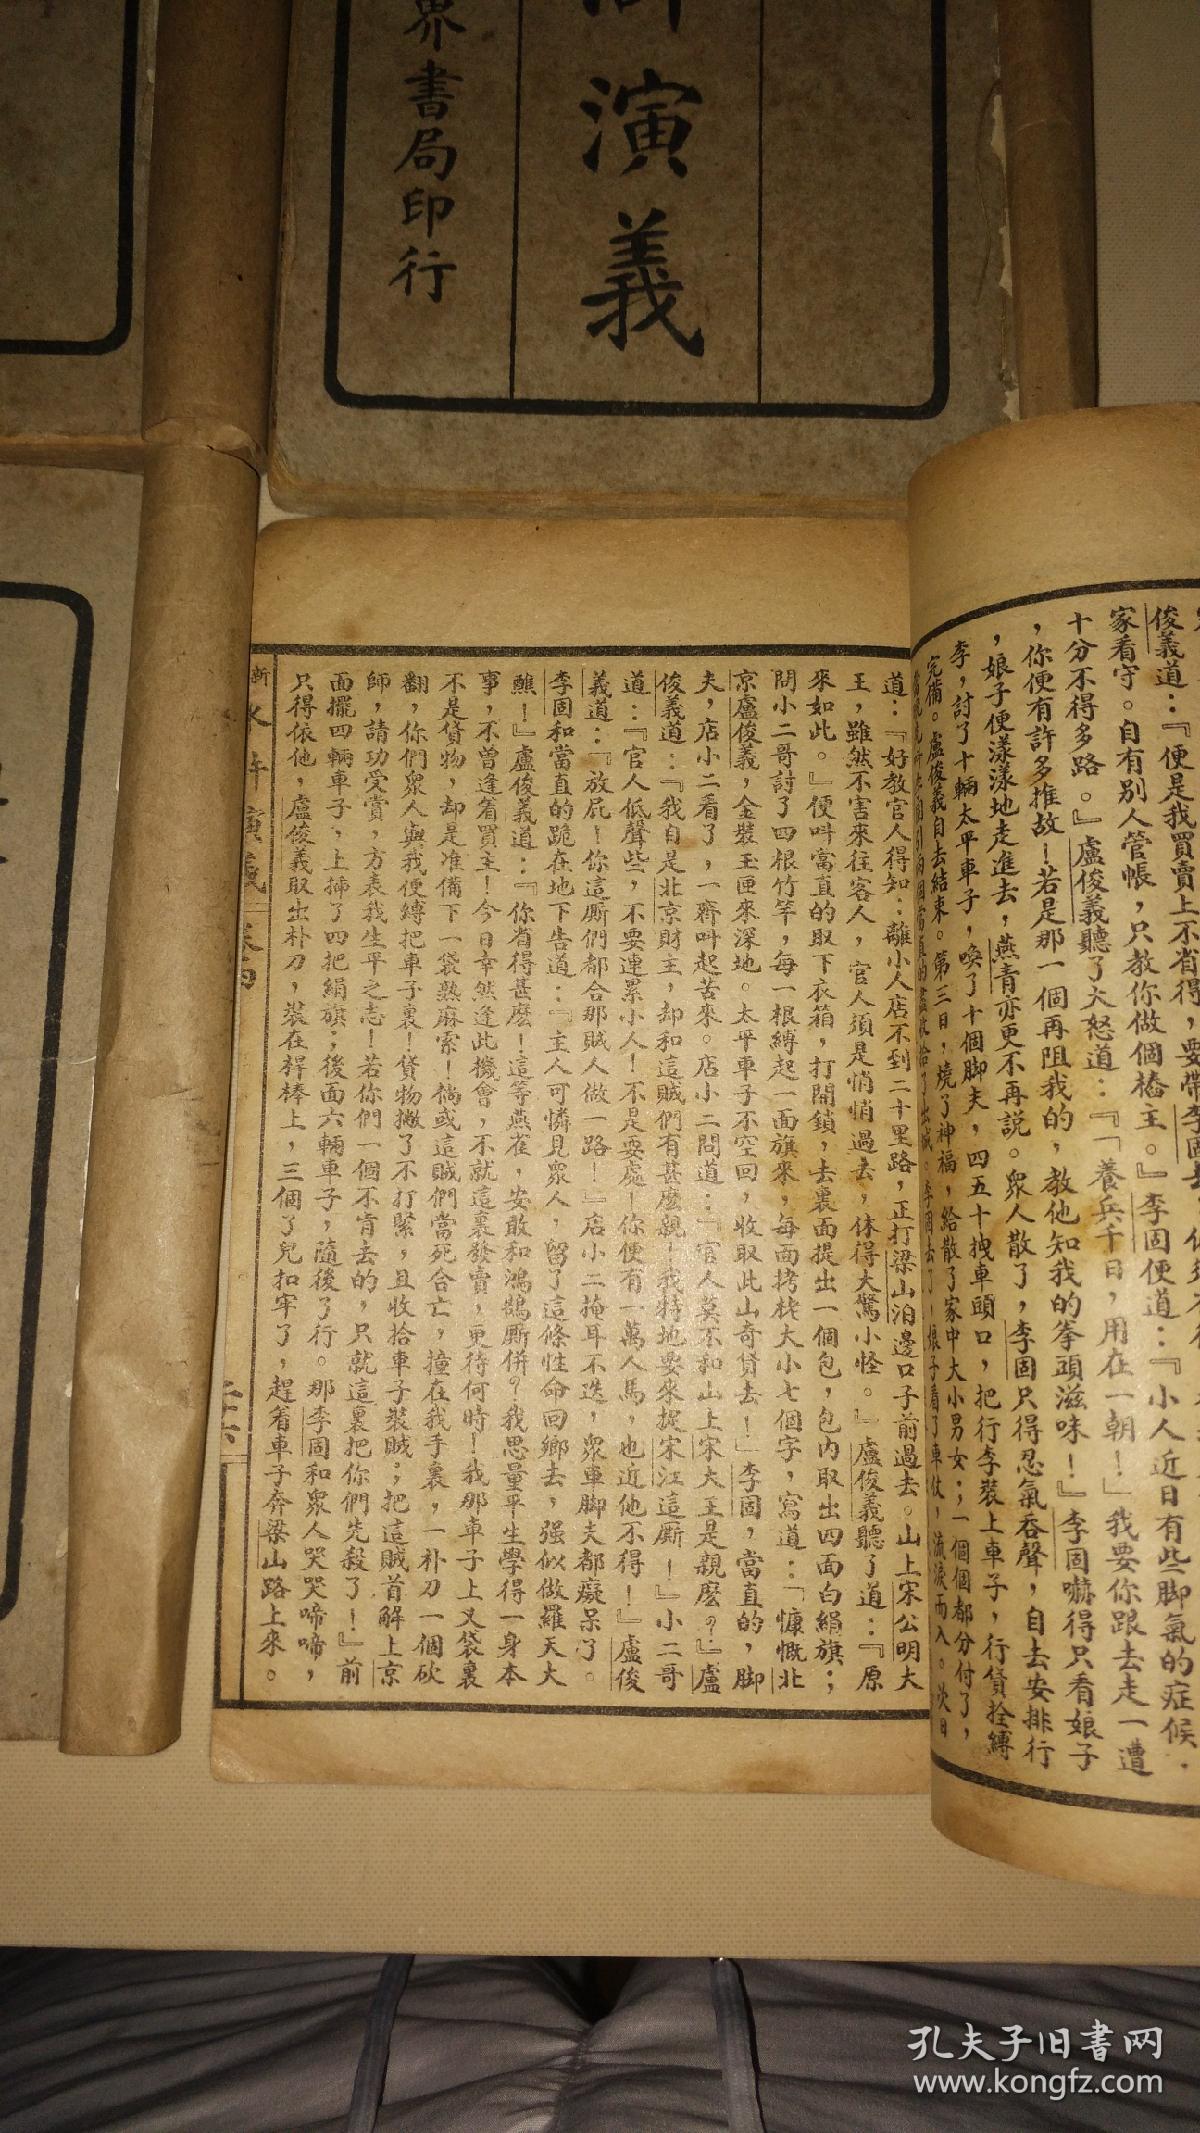 演義
界書局印行
俊義道：『便是我買賣上不省得，要帶李固去
家看守。自有別人管帳，只教你做個樁主。』李固便道：『小人近日有些脚氣的症候，
十分不得多路。』盧俊義聽了大怒道：『「養兵千日，用在一朝！」我要你跟去走一遭
，你便有許多推故！若是那一個再阻我的，教他知我的拳頭滋味！』李固嚇得只看娘子
，娘子便漾漾地走進去，燕青亦更不再說。衆人散了，李固只得忍氣吞聲，自去安排行
李，討了十輛太平車子，喚了十個脚夫，四五十拽車頭口，把行李裝上車子，行貨拴縛
完備。盧俊義自去結束。第三日，燒了神福，給散了家中大小男女；一個個都分付了，
李固去了！娘子看了車仗，流淚而入。次日
道：『好教官人得知：離小人店不到二十里路，正打梁山泊邊口子前過去。山上宋公明大
王，雖然不害來往客人，官人須是悄悄過去，休得大驚小怪。』盧俊義聽了道：『原
來如此。』便叫當直的取下衣箱，打開鎖，去裏面提出一個包，包內取出四面白絹旗；
問小二哥討了四根竹竿，每一根縛起一面旗來，每面栲栳大小七個字，寫道：「慷慨北
京盧俊義，金裝玉匣來深地。太平車子不空回，收取此山奇貨去！」李固，當直的，脚
夫，店小二看了，一齊叫起苦來。店小二問道：『官人莫不和山上宋大王是親麽？』盧
俊義道：『我自是北京財主，却和這賊們有甚麽親！我特地要來捉宋江這厮！』小二哥
道：『官人低聲些，不要連累小人！不是耍處！你便有一萬人馬，也近他不得！』盧俊
義道：『放屁！你這厮們都合那賊人做一路！』店小二掩耳不迭，衆車脚夫都癡呆了。
李固和當直的跪在地下告道：『主人可憐見衆人，留了這條性命回鄉去，强似做羅天大
醮！』盧俊義道：『你省得甚麽！這等燕雀，安敢和鴻鵠厮併？我思量平生學得一身本
事，不曾逢着買主！今日幸然逢此機會，不就這裏發賣，更待何時！我那車子上叉袋裏
不是貨物，却是准備下一袋熟麻索！倘或這賊們當死合亡，撞在我手裏，一朴刀一個砍
翻，你們衆人與我便縛把車子裏！貨物撇了不打緊，且收拾車子裝賊；把這賊首解上京
師，請功受賞，方表我生平之志！若你們一個不肯去的，只就這裏把你們先殺了！』前
面擺四輛車子，上插了四把絹旗；後面六輛車子，隨後了行。那李固和衆人哭哭啼啼，
只得依他，盧俊義取出朴刀，裝在桿棒上，三個了兒扣牢了，趕着車子奔梁山路上來。
新 水滸演義 卷四 二十六
孔夫子旧書网
www.kongfz.com